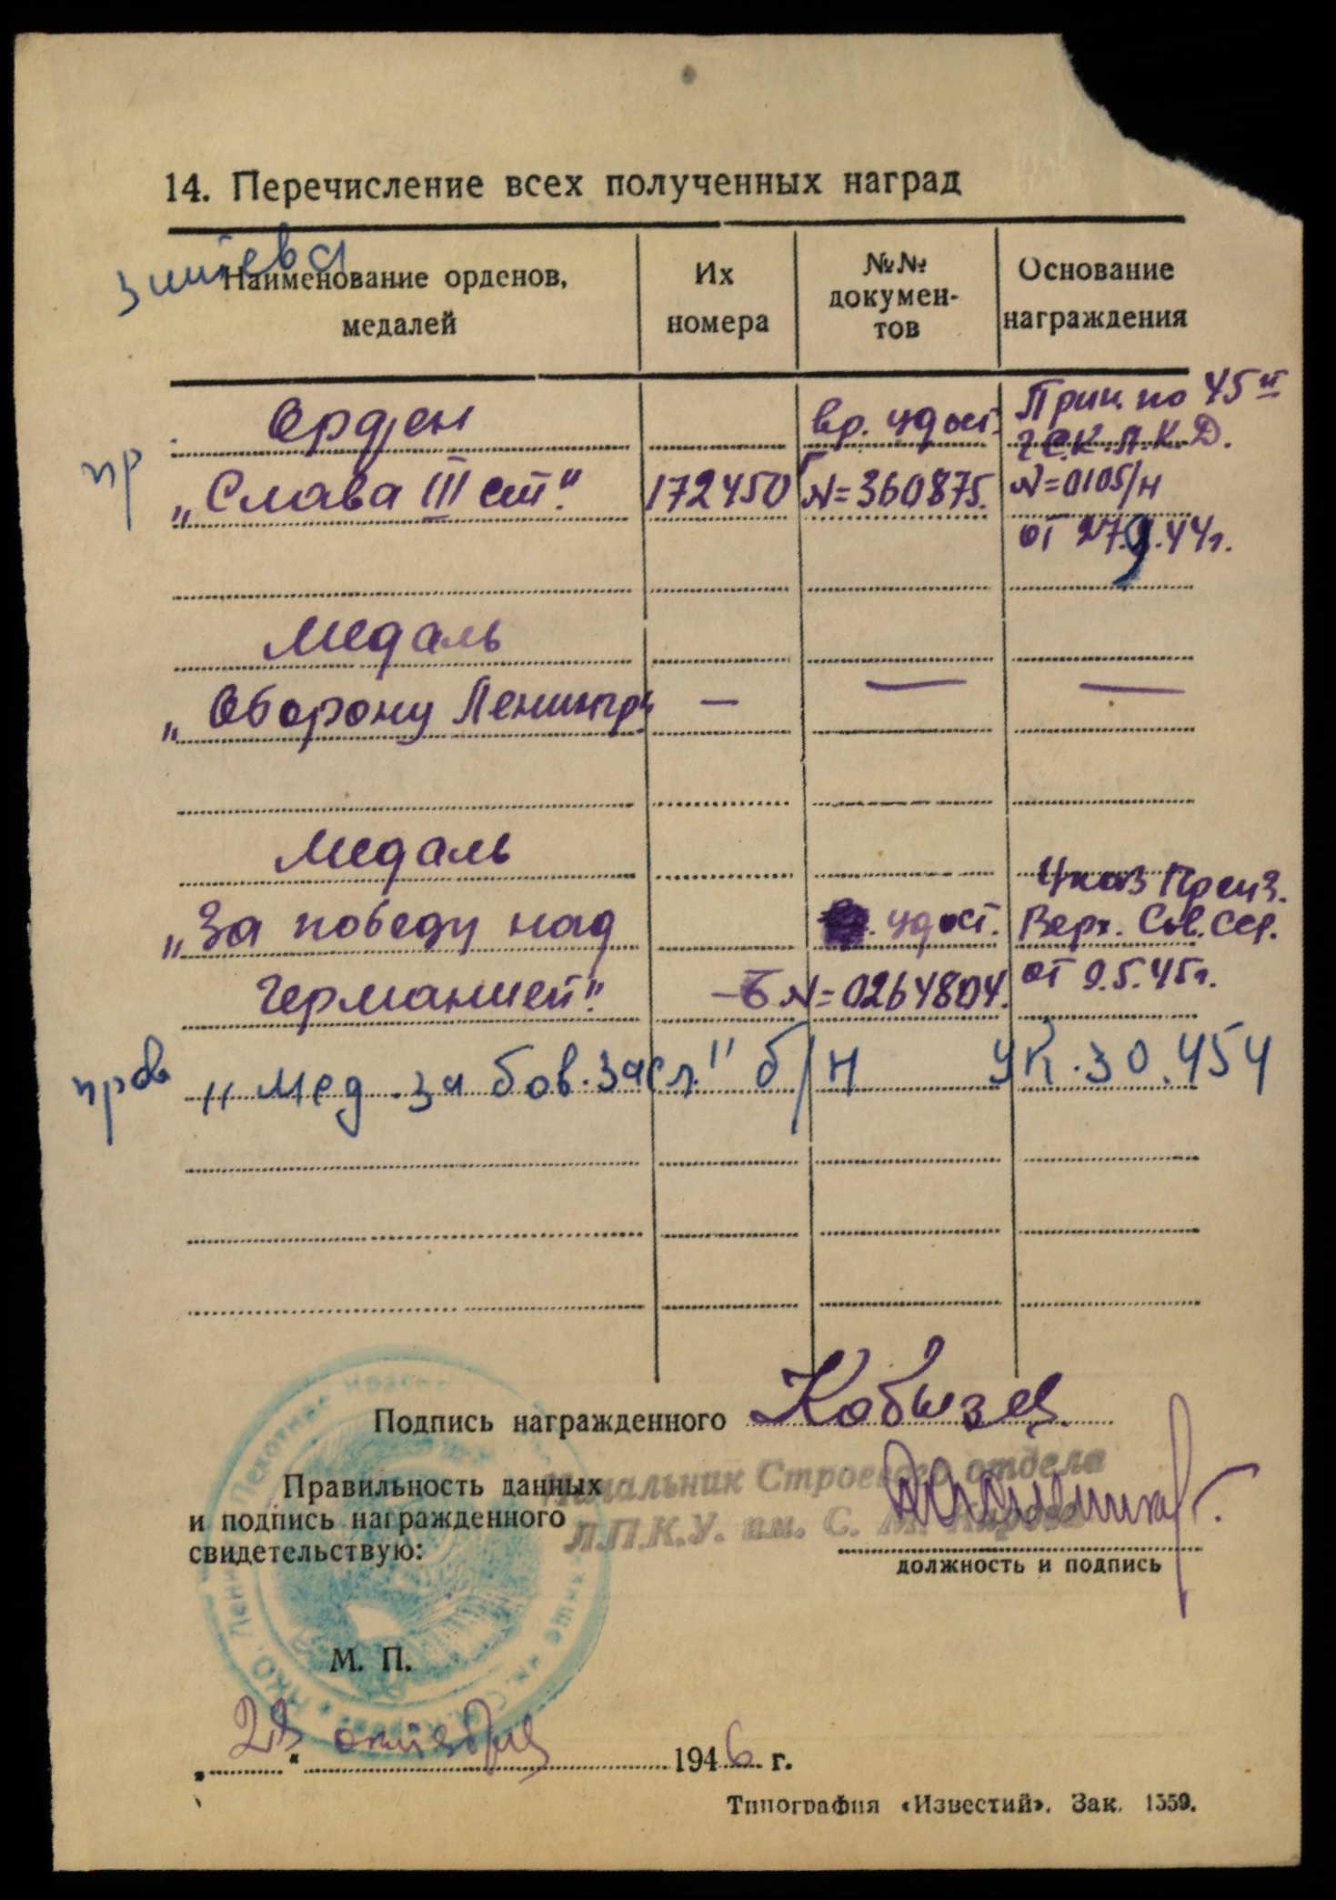 14. Перечисление всех полученных наград
Наименование орденов, медалей
Их номера
№№ докумен-
тов
Основание награждения
Орден
вр. удост.
Прик. по 45й
г.С.К.Л.К.Д.
пр
„Слава III ст."
172450
N=360875.
N=0105/н
от 27.9.44г.
Медаль
„Оборону Ленингр"
—
—
—
Медаль
Указ През.
„За победу над
удост.
Верх. Сов. ССР.
Германией".
Б N=0264804.
от 9.5.45г.
пров
„Мед. за бов. засл." б/н
Ук. 30.454
Подпись награжденного
Кобызев
Правильность данных
и подпись награжденного
свидетельствую:
Начальник Строевого отдела
Л.П.К.У. им. С. М. Кирова
должность и подпись
М. П.
„29" октября 1946 г.
Типография «Известий». Зак. 1559.